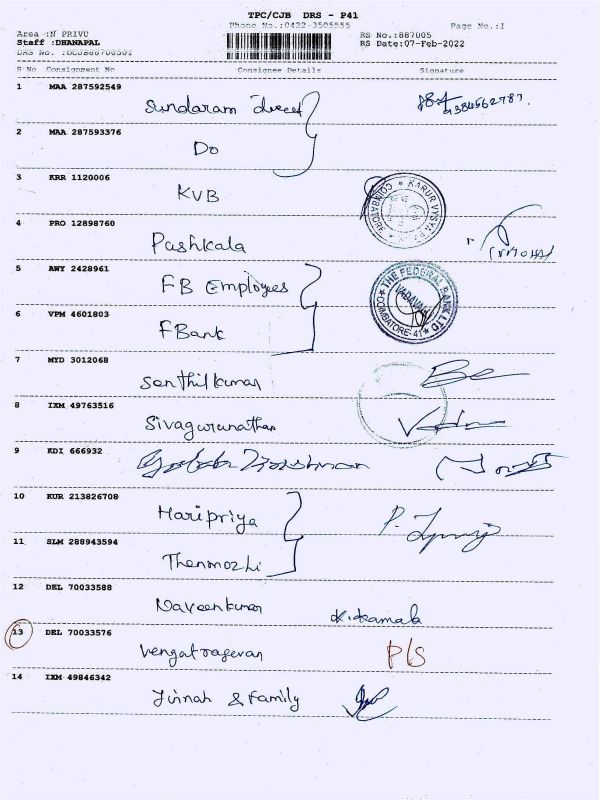 TPC/CJB DRS - P41
Phone No.:0422-3505555 Page No.:1
Area :N PRIVU RS No.:887005
Staff :DHANAPAL RS Date:07-Feb-2022
DRS No. :DCJB88700501
S No Consignment No Consignee Details Signature
1 MAA 287592549 Sundaram direct 9384562787.
2 MAA 287593376 Do
3 KRR 1120006 KVB ★ KARUR VYSYA COIMBATORE
4 PRO 12898760 Pashkala
5 AWY 2428961 FB Employees THE FEDERAL BANK LTD VADAVALLI COIMBATORE-41
6 VPM 4601803 FBank
7 MYD 3012068 Senthilkumar
8 IXM 49763516 Sivagurunathan
9 KDI 666932
10 KUR 213826708 Haripriya
11 SLM 288943594 Thenmozhi
12 DEL 70033588 Naveenkumar K.Kamala
13 DEL 70033576 Vengatragavan P/S
14 IXM 49846342 Jinnah & Family